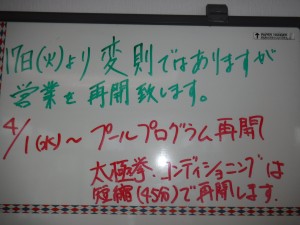 17日(火)より変則ではありますが
営業を再開致します。
4/1(水)～プールプログラム再開
太極拳・コンディショニングは
短縮(45分)で再開します。